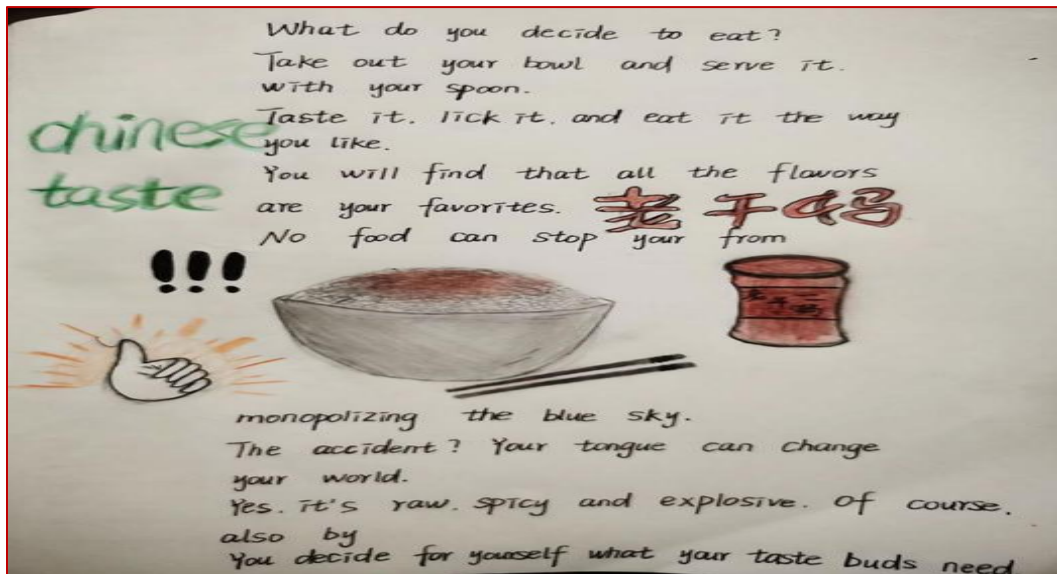 What do you decide to eat?
Take out your bowl and serve it.
with your spoon.
Taste it. lick it. and eat it the way
you like.
chinese
taste
You will find that all the flavors
are your favorites.
老干妈
No food can stop your from
!!!
老干妈
monopolizing the blue sky.
The accident? Your tongue can change
your world.
Yes. it's raw. spicy and explosive. Of course.
also by
You decide for yourself what your taste buds need